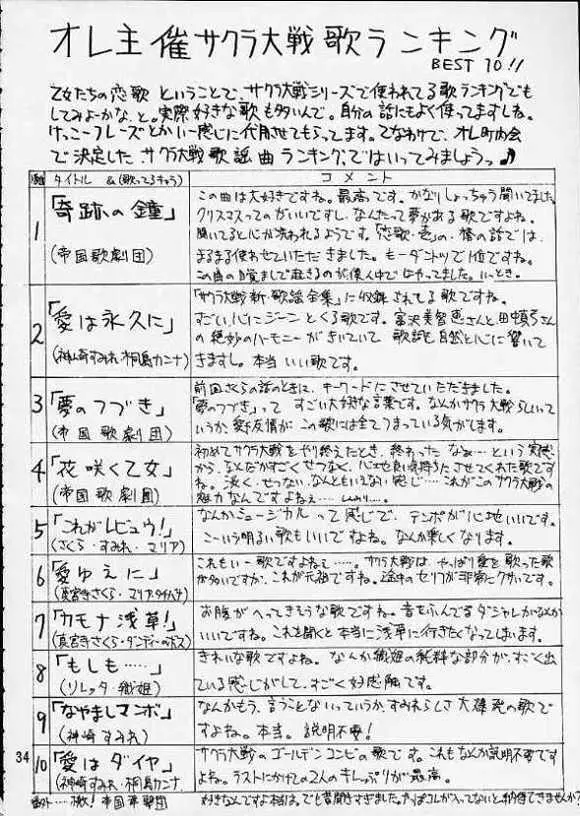 オレ主催サクラ大戦歌ランキング
BEST 10!!
乙女たちの恋歌ということで、サクラ大戦シリーズで使われてる歌ランキングでも
してみよーかな、と。実際好きな歌も多いんで。自分の話にもよく使ってますしね。
けっこーフレーズとかいー感じに代用させてもらってます。てなわけで、オレ町内会
で決定した サクラ大戦歌謡曲ランキング、ではいってみましょうっ♪
タイトル &(歌ってるキャラ)
コメント
1
「奇跡の鐘」
(帝国歌劇団)
この曲は大好きですね。最高です。かなりしょっちゅう聞いてました
クリスマスってのがいいですし、なんたって夢がある歌ですよね。
聞いてると心が洗われるようです。「恋歌・壱」の、椿の話では、
まるまる使わせていただきました。もーダントツで1位ですね。
2
「愛は永久に」
(神崎すみれ・桐島カンナ)
「サクラ大戦 新・歌謡全集」に収録されてる歌ですね。
すごい、心にジーンとくる歌です。富沢美智恵さんと田中真弓さん
の絶妙のハーモニーがきいていて 歌詞も自然と心に響いて
きますし。本当 いい歌です。
3
「夢のつづき」
(帝国歌劇団)
前回さくらの話のときに、キーワードにさせていただきました。
「夢のつづき」って すごい大好きな言葉です。なんかサクラ大戦らしいって
いうか、愛と友情が この歌には全てつまっている気がします。
4
「花咲く乙女」
(帝国歌劇団)
初めてサクラ大戦をやり終えたとき、終わった なぁ…という実感
から、なんだかすごくせつなく、心地良い気持ちにさせてくれた歌です
ね。淡く、せつない、なんともいえない感じ……これがこのサクラ大戦の
魅力なんですよねぇ……しんみり…。
5
「これがレビュウ!」
(さくら・すみれ・マリア)
なんかミュージカルって感じで、テンポが心地いいです。
こーいう明るい歌もいいですよね。なんか楽しくなります。
6
「愛ゆえに」
(真宮寺さくら・マリア・タチバナ)
これもいー歌ですよねぇ……。サクラ大戦は、やっぱり愛を歌った歌
が多いですが、これが元祖ですね。途中のセリフが非常にクサいです。
7
「カモナ浅草!」
(真宮寺さくら・ダンディーのボス)
お腹がへってきそうな歌ですね。音をふんでるダジャレがなんか
いいですね。これを聞くと本当に浅草に行きたくなってしまいます。
8
「もしも……」
(ソレッタ・織姫)
きれいな歌ですよね。なんか織姫の純粋な部分が、すごく出
ている感じがして、すごく好感触です。
9
「なやましマンボ」
(神崎すみれ)
なんかもう、言うことないっていうか、すみれらしさ大爆発の歌で
すよね。本当。説明不要!
10
「愛はダイヤ」
(神崎すみれ・桐島カンナ)
サクラ大戦のゴールデンコンビの歌です。これもなんか説明不要です
よね。ラストにかけての2人のキレっぷりが最高。
34
番外……檄!帝国華撃団
好きなんですよ本当は。でも昔聞きすぎました。やっぱコレが入ってないと、納得できませんか?